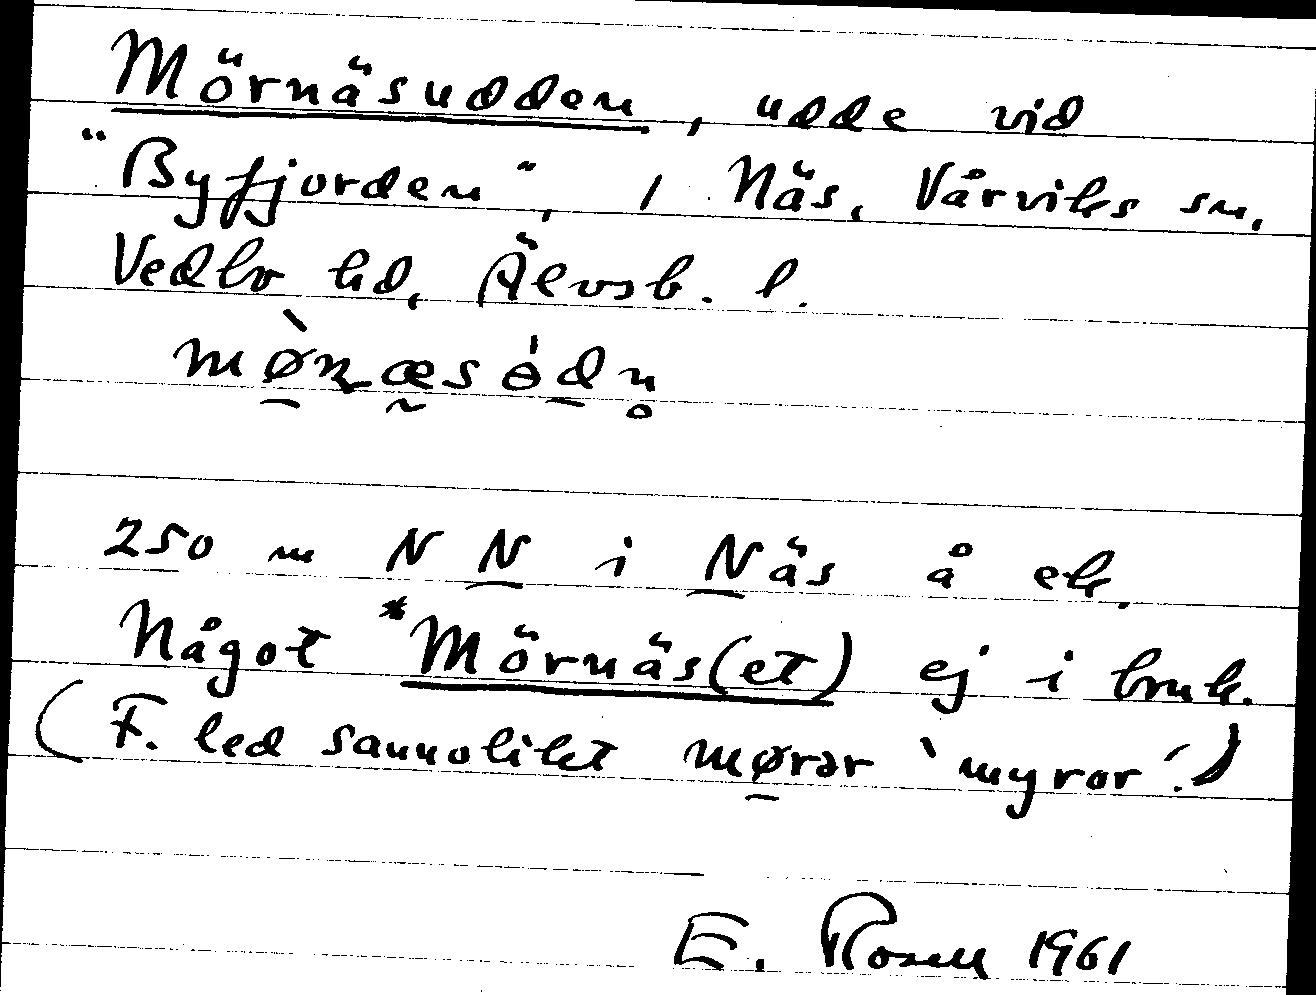 Mörnäsudden, udde vid
"Byfjorden", i Näs, Vårviks sn,
Vedbo hd, Älvsb. l.
250 m N N i Näs å ek.
Något *Mörnäs(et) ej i bruk.
(F. led sannolikt mørər 'myror'.)
E. Rosell 1961